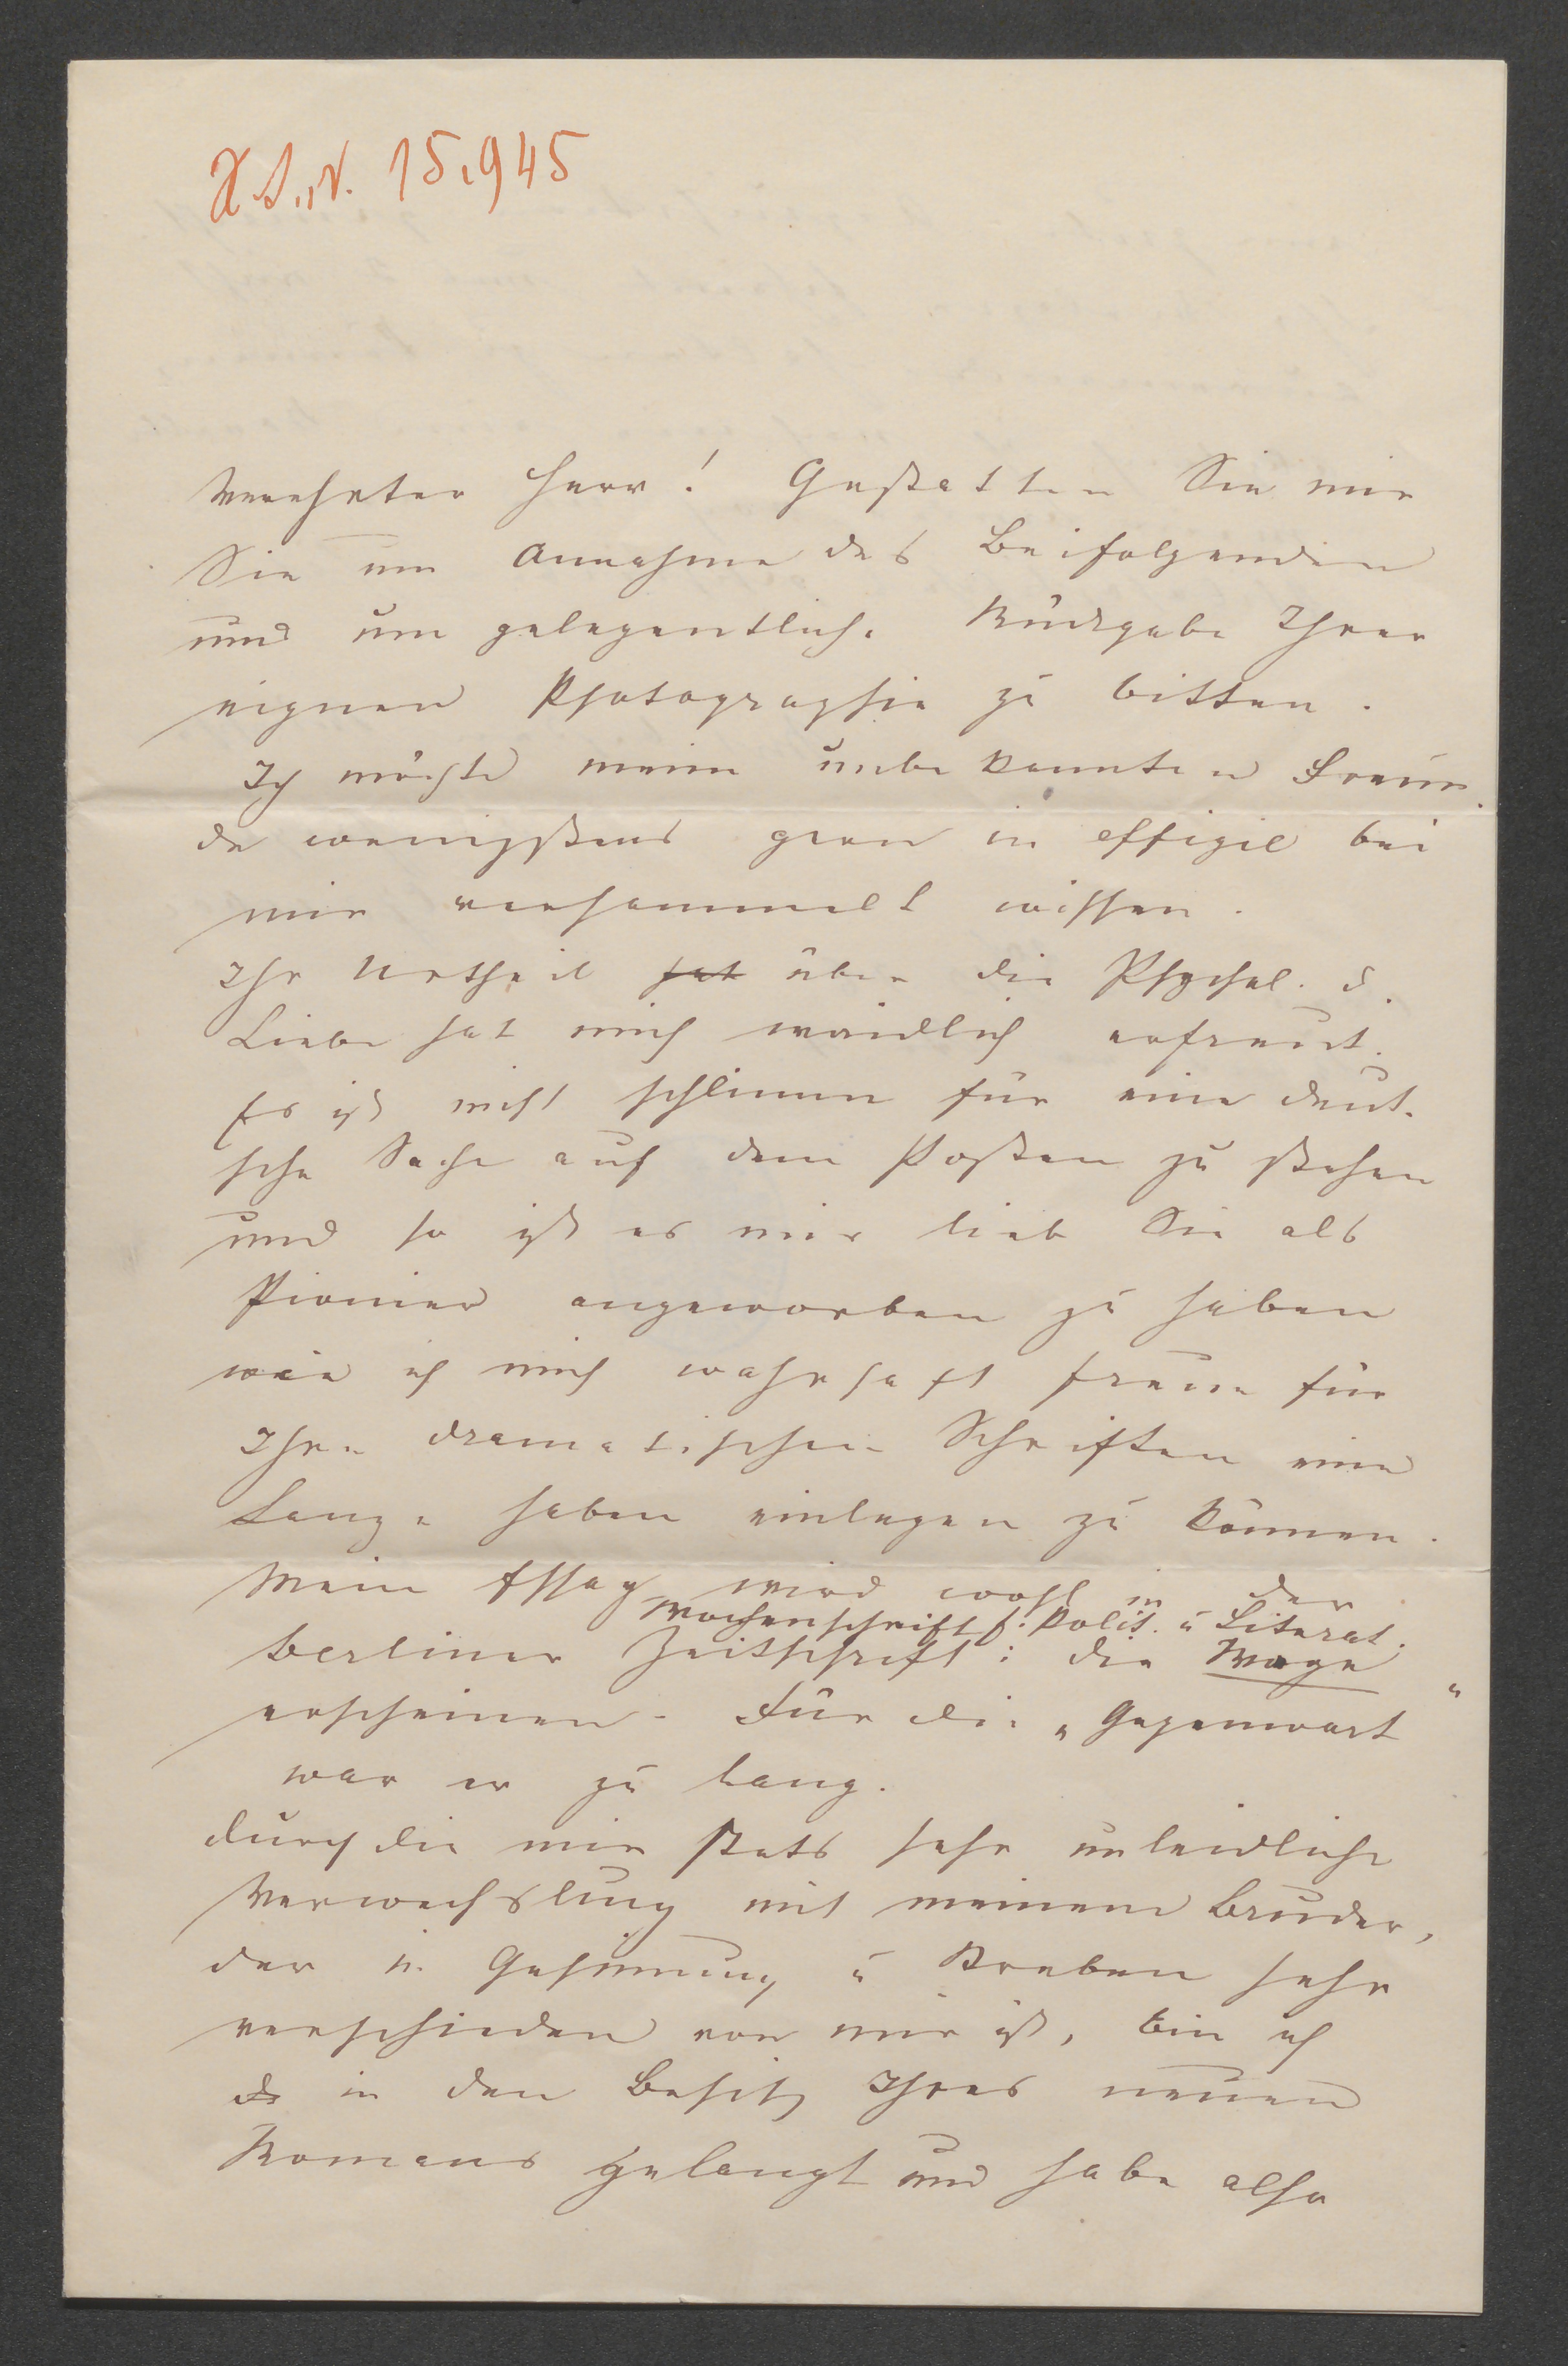 H.I.N. 15.945
Verehrter Herr! Gestatten Sie mir
Sie um Annahme des Beifolgenden
und um gelegentliche Rückgabe Ihrer
eignen Photographie zu bitten.
Ich möchte meine unbekannten Freun-
de wenigstens gern in effigie bei
mir versammelt wissen.
Ihr Urtheil hat über die Psychol. d.
Liebe hat mich weidlich erfreut.
Es ist nicht schlimm für eine deut-
sche Sache auf dem Posten zu stehen
und so ist es mir lieb Sie als
Pionier angeworben zu haben
wie ich mich wahrhaft freue für
Ihre dramatischen Schriften eine
Lanze haben einlegen zu können.
Mein Essay wird wohl in der
Wochenschrift f. Polit. u Literat.
Berliner Zeitschrift: die Wage
erscheinen. Für die „Gegenwart“
war er zu lang.
Durch die mir stets sehr unleidliche
Verwechslung mit meinem Bruder,
der in Gesinnung u Streben sehr
verschieden von mir ist, bin ich
in den Besitz Ihres neuen
Romans gelangt und habe also